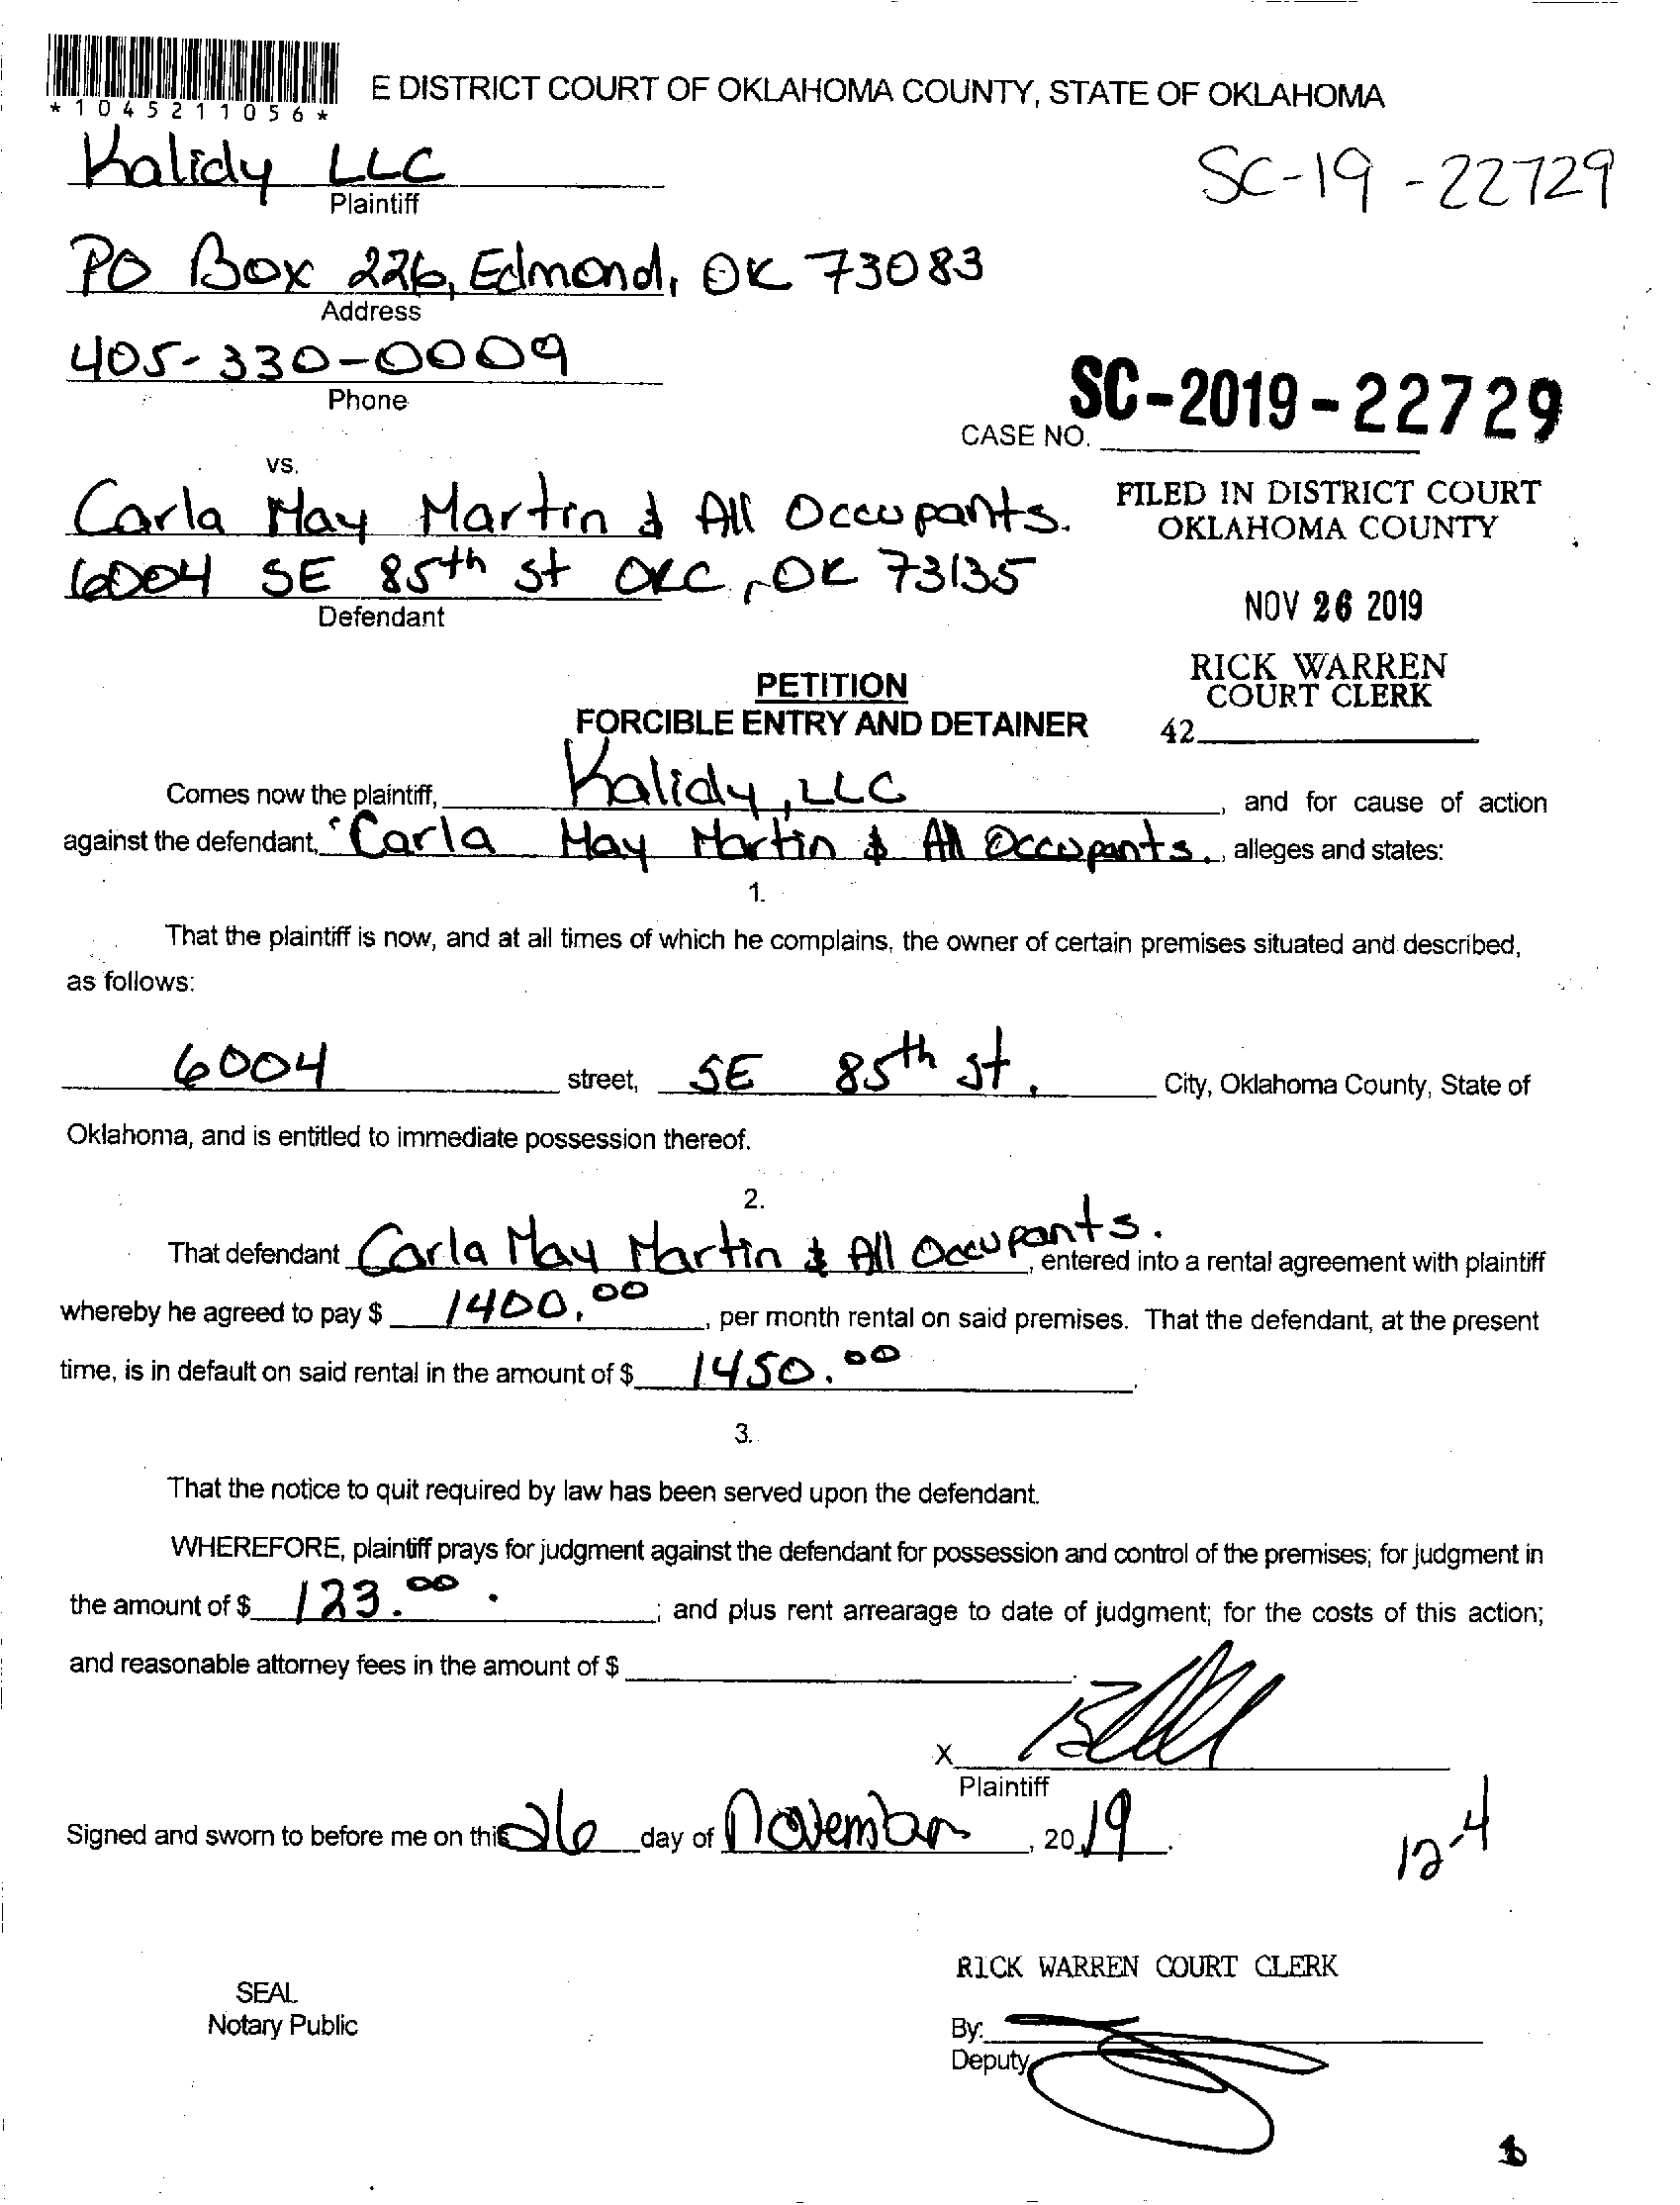 *1045211056*
E DISTRICT COURT OF OKLAHOMA COUNTY, STATE OF OKLAHOMA
Kalidy LLC
Plaintiff
SC-19-22729
PO Box 226, Edmond, OK 73083
Address
405-330-0009
Phone
SC-2019-22729
CASE NO.
vs.
Carla May Martin & All Occupants.
6004 SE 85th St OKC, OK 73135
Defendant
FILED IN DISTRICT COURT
OKLAHOMA COUNTY
NOV 26 2019
RICK WARREN
COURT CLERK
42
PETITION
FORCIBLE ENTRY AND DETAINER
Comes now the plaintiff, Kalidy, LLC, and for cause of action
against the defendant, Carla May Martin & All Occupants., alleges and states:
1.
That the plaintiff is now, and at all times of which he complains, the owner of certain premises situated and described,
as follows:
6004 street, SE 85th st. City, Oklahoma County, State of
Oklahoma, and is entitled to immediate possession thereof.
2.
That defendant Carla May Martin & All Occupants., entered into a rental agreement with plaintiff
whereby he agreed to pay $ 1400.00, per month rental on said premises. That the defendant, at the present
time, is in default on said rental in the amount of $ 1450.00.
3.
That the notice to quit required by law has been served upon the defendant.
WHEREFORE, plaintiff prays for judgment against the defendant for possession and control of the premises; for judgment in
the amount of $ 123.00.; and plus rent arrearage to date of judgment; for the costs of this action;
and reasonable attorney fees in the amount of $
X
Plaintiff
Signed and sworn to before me on this 26 day of November, 2019.
12-4
RICK WARREN COURT CLERK
SEAL
Notary Public
By:
Deputy